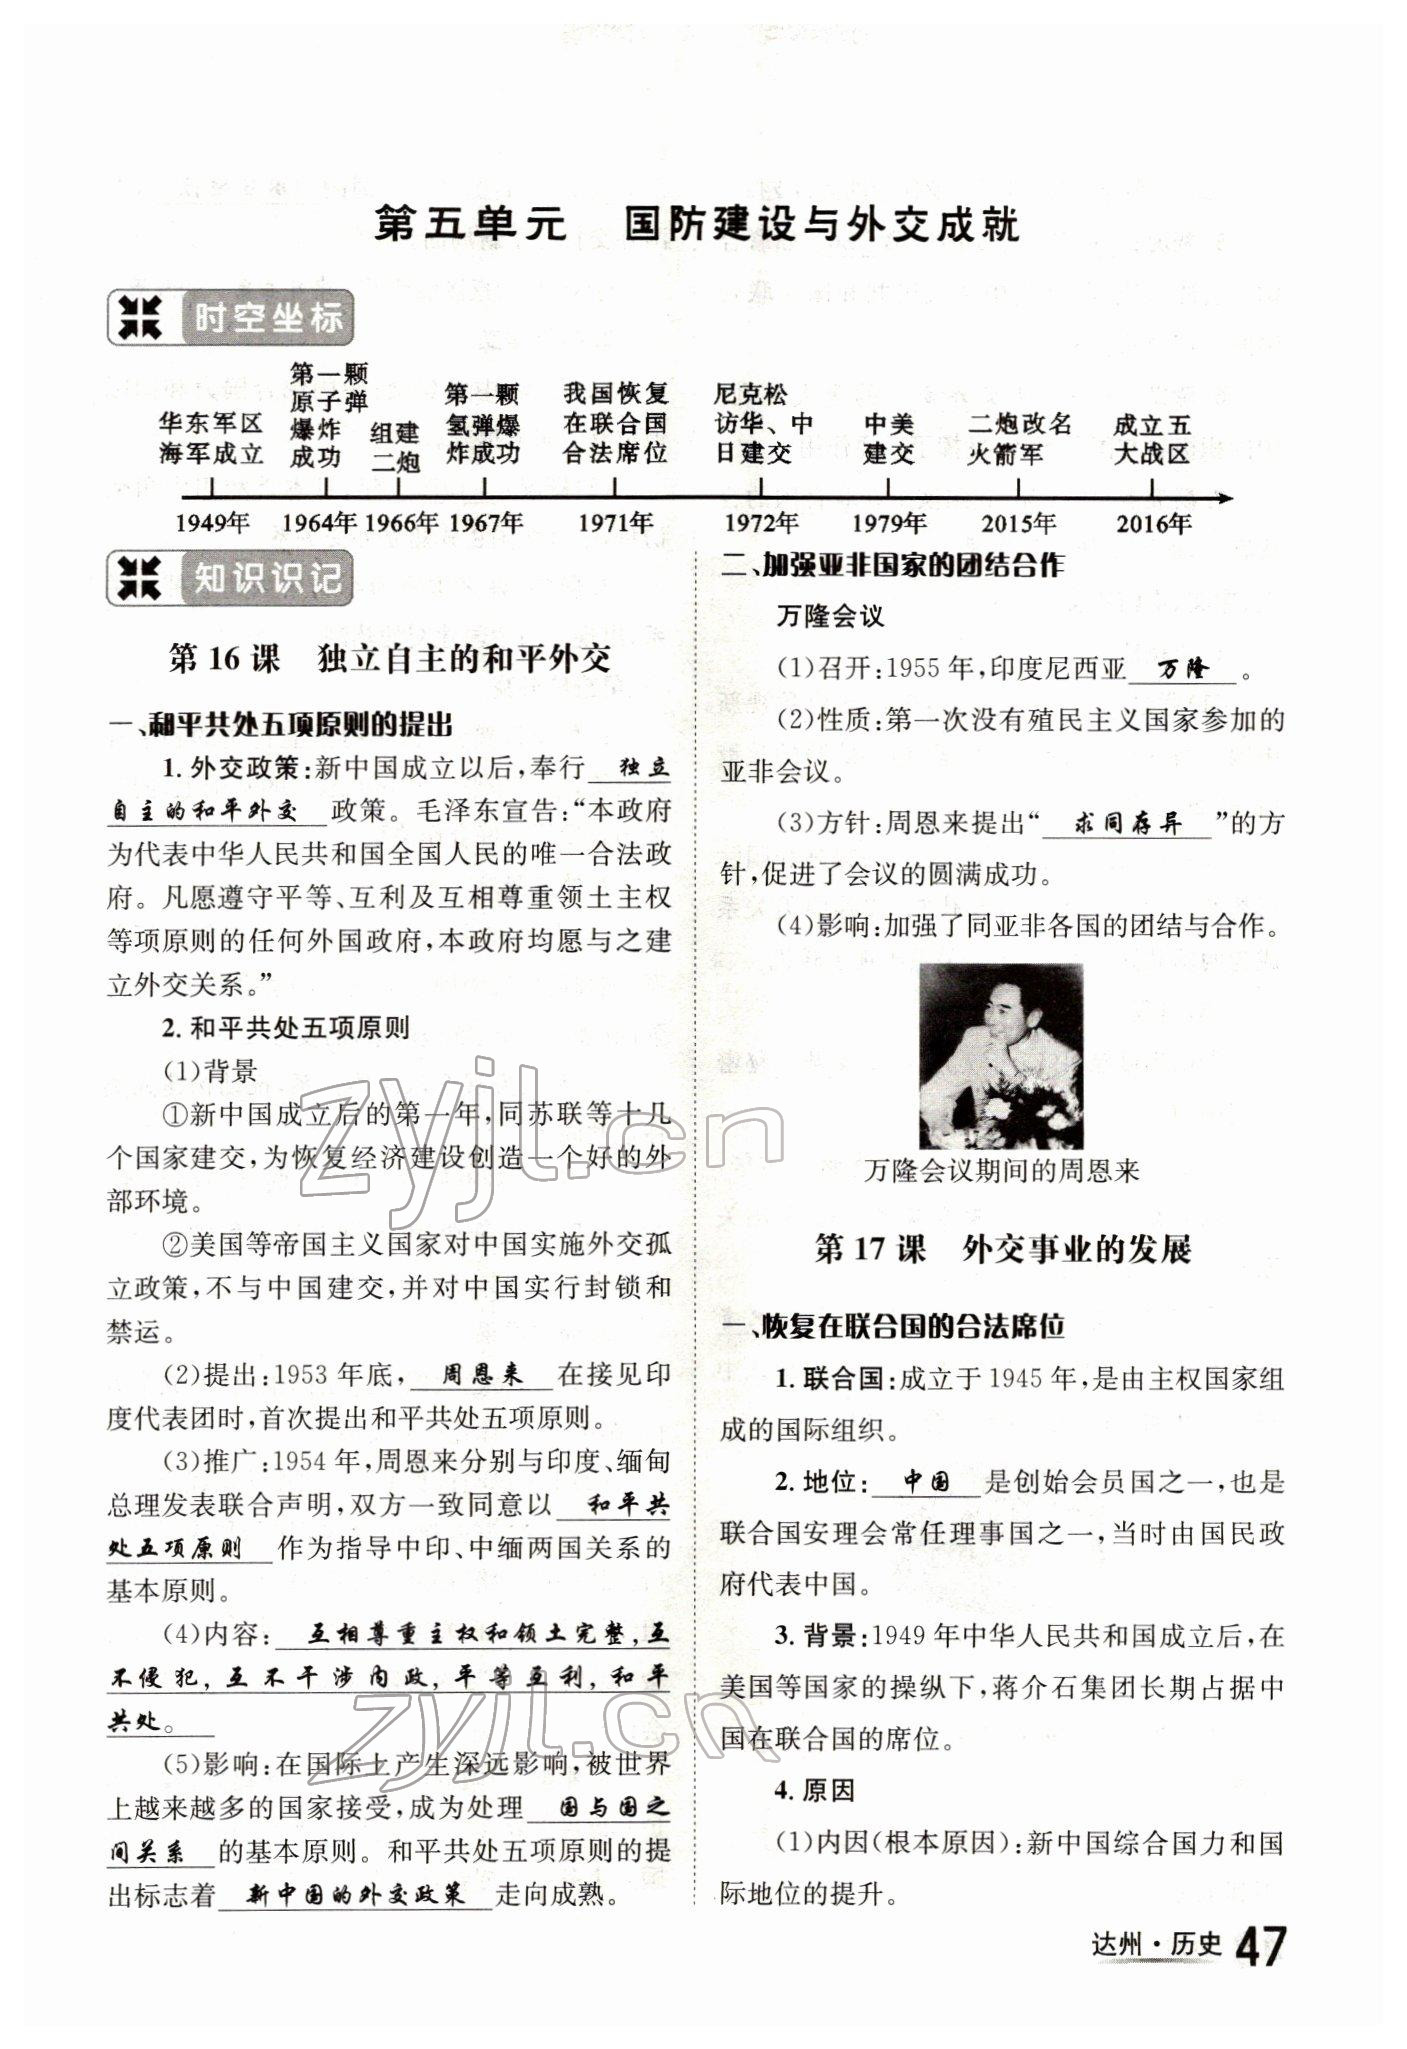 第五单元 国防建设与外交成就
时空坐标
华东军区
海军成立
第一颗
原子弹
爆炸
成功
组建
二炮
第一颗
氢弹爆
炸成功
我国恢复
在联合国
合法席位
尼克松
访华、中
日建交
中美
建交
二炮改名
火箭军
成立五
大战区
1949年 1964年 1966年 1967年 1971年 1972年 1979年 2015年 2016年
知识识记
第 16 课 独立自主的和平外交
一、和平共处五项原则的提出
1. 外交政策:新中国成立以后,奉行 独立
自主的和平外交 政策。毛泽东宣告:“本政府
为代表中华人民共和国全国人民的唯一合法政
府。凡愿遵守平等、互利及互相尊重领土主权
等项原则的任何外国政府,本政府均愿与之建
立外交关系。”
2. 和平共处五项原则
(1)背景
①新中国成立后的第一年,同苏联等十几
个国家建交,为恢复经济建设创造一个好的外
部环境。
②美国等帝国主义国家对中国实施外交孤
立政策,不与中国建交,并对中国实行封锁和
禁运。
(2)提出:1953 年底, 周恩来 在接见印
度代表团时,首次提出和平共处五项原则。
(3)推广:1954 年,周恩来分别与印度、缅甸
总理发表联合声明,双方一致同意以 和平共
处五项原则 作为指导中印、中缅两国关系的
基本原则。
(4)内容: 互相尊重主权和领土完整,互
不侵犯,互不干涉内政,平等互利,和平
共处。
(5)影响:在国际上产生深远影响,被世界
上越来越多的国家接受,成为处理 国与国之
间关系 的基本原则。和平共处五项原则的提
出标志着 新中国的外交政策 走向成熟。
二、加强亚非国家的团结合作
万隆会议
(1)召开:1955 年,印度尼西亚 万隆 。
(2)性质:第一次没有殖民主义国家参加的
亚非会议。
(3)方针:周恩来提出“ 求同存异 ”的方
针,促进了会议的圆满成功。
(4)影响:加强了同亚非各国的团结与合作。
万隆会议期间的周恩来
第 17 课 外交事业的发展
一、恢复在联合国的合法席位
1. 联合国:成立于 1945 年,是由主权国家组
成的国际组织。
2. 地位: 中国 是创始会员国之一,也是
联合国安理会常任理事国之一,当时由国民政
府代表中国。
3. 背景:1949 年中华人民共和国成立后,在
美国等国家的操纵下,蒋介石集团长期占据中
国在联合国的席位。
4. 原因
(1)内因(根本原因):新中国综合国力和国
际地位的提升。
zyjl.cn
zyjl.cn
达州·历史 47